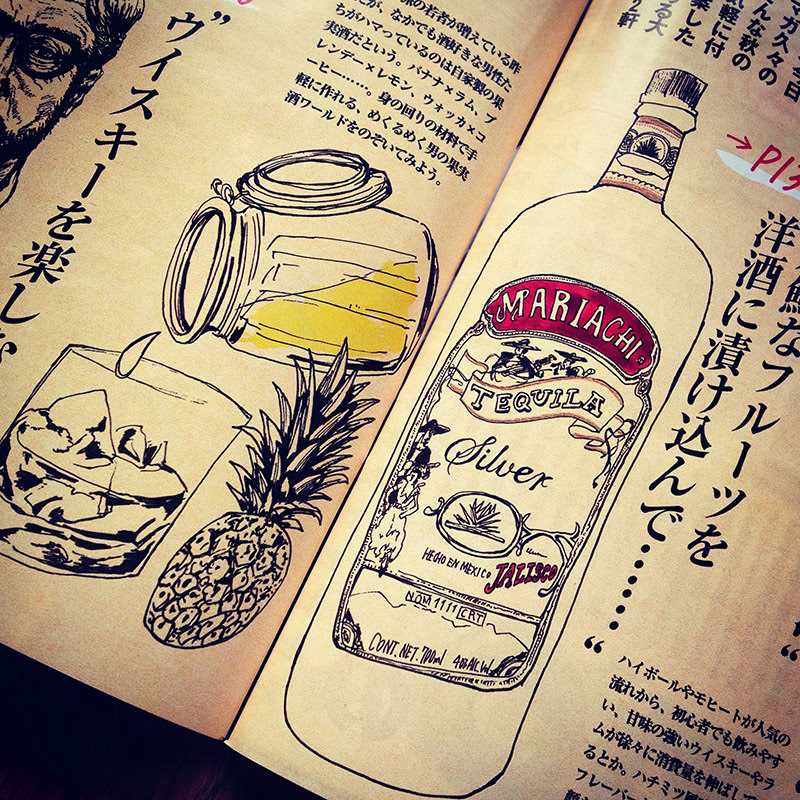 今日
マガ久々の
んな秋の
気軽に付
楽した
る大
り軒
鮮なフルーツを
洋酒に漬け込んで……
ハイボールやモヒートが人気の
流れから、初心者でも飲みやす
い、甘味の強いウイスキーやラ
ムが徐々に消費量を伸ばして
るとか。ハチミツ風
フレーバー
MARIACHI
TEQUILA
Silver
HECHO EN MEXICO JALISCO
NOM 1111 CRT
CONT. NET. 700ml 40% Alc. Vol.
の若者が増えている昨
が、なかでも酒好きな男性た
ちがハマっているのは自家製の果
実酒だという。バナナ×ラム、ブ
レンデー×レモン、ウォッカ×コ
ーヒー……。身の回りの材料で手
軽に作れる、めくるめく男の果実
酒ワールドをのぞいてみよう。
"ウイスキーを楽し